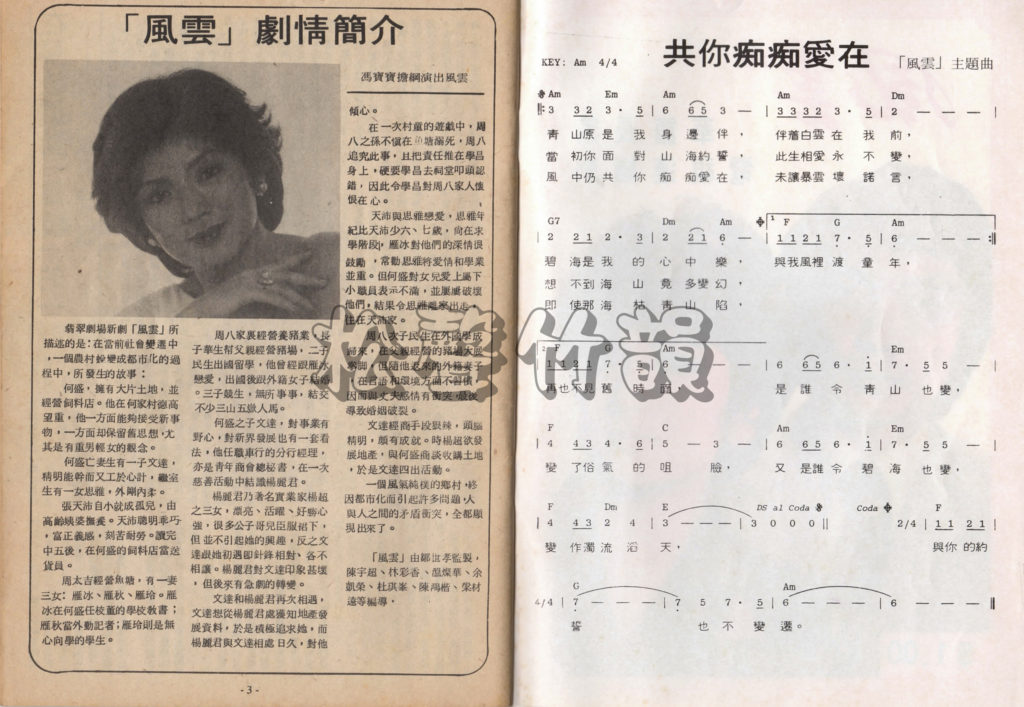 「風雲」劇情簡介
馮寶寶擔綱演出風雲
翡翠劇場新劇「風雲」所
描述的是：在當前社會變遷中
，一個農村蛻變成都市化的過
程中，所發生的故事：
何盛，擁有大片土地，並
經營飼料店。他在何家村德高
望重，他一方面能夠接受新事
物，一方面却保留舊思想，尤
其是有重男輕女的觀念。
何盛亡妻生有一子文達，
精明能幹而又工於心計，繼室
生有一女思雅，外剛內柔。
張天沛自小就成孤兒，由
高齡嬈婆撫養。天沛聰明乖巧
，富正義感，刻苦耐勞。讀完
中五後，在何盛的飼料店當送
貨員。
周太吉經營魚塘，有一妻
三女：雁冰、雁秋、雁玲。雁
冰在何盛任校董的學校教書；
雁秋當外勤記者；雁玲則是無
心向學的學生。
周八家裏經營養豬業，長
子華生幫父親經營豬場，二子
民生出國留學，他曾經跟雁冰
戀愛，出國後跟外籍女子結婚
。三子競生，無所事事，結交
不少三山五嶽人馬。
何盛之子文達，對事業有
野心，對新界發展也有一套看
法，他任職車行的分行經理，
亦是青年商會總秘書，在一次
慈善活動中結識楊麗君。
楊麗君乃著名實業家楊超
之三女，漂亮、活躍、好勝心
強，很多公子哥兒臣服裙下，
但並不引起她的興趣，反之文
達跟她初遇即針鋒相對、各不
相讓。楊麗君對文達印象甚壞
，但後來有急劇的轉變。
文達和楊麗君再次相遇，
文達想從楊麗君處獲知地產發
展資料，於是積極追求她，而
楊麗君與文達相處日久，對他
傾心。
在一次村童的遊戲中，周
八之孫不慎在魚塘溺死，周八
追究此事，且把責任推在學昌
身上，硬要學昌去祠堂叩頭認
錯，因此令學昌對周八家人懷
恨在心。
天沛與思雅戀愛，思雅年
紀比天沛少六、七歲，尚在求
學階段，雁冰對他們的深情很
鼓勵，常勸思雅將愛情和學業
並重。但何盛對女兒愛上屬下
小職員表示不滿，並屢屢破壞
他們，結果令思雅離家出走，
住在天沛家。
周八次子民生在外國學成
歸來，在父親經營的豬場大展
因而與丈夫感情有衝突，最後
導致婚姻破裂。
文達經商手段狠辣，頭腦
精明，頗有成就。時楊超欲發
展地產，與何盛商談收購土地
，於是文達四出活動。
一個風氣純樸的鄉村，終
因都市化而引起許多問題，人
與人之間的矛盾衝突，全都顯
現出來了。
「風雲」由鄒世孝監製，
陳宇超、林彩香、溫燦華、余
凱榮、杜琪峯、陳鴻楷、梁材
遠等編導。
- 3 -
共你痴痴愛在
「風雲」主題曲
KEY: Am 4/4
Am Em Am Am Dm
3 32 3 · 5 | 6 65 3 — | 3332 3 · 5 | 2 — — — |
青山原是我身邊伴， 伴着白雲在我前，
當初你面對山海約誓， 此生相愛永不變，
風中仍共你痴痴愛在， 未讓暴雲壞諾言，
G7 Dm Am 1 F G Am
| 2 21 2 · 3 | 2 21 6 — | 1121 7 · 5 | 6 — — — :||
碧海是我的心中樂， 與我風裡渡童年，
想不到海山竟多變幻，
即使那海枯青山陷，
F G Am Em
| 1121 7 · 5 | 6 — — — | 6 65 6 · 1 | 7 · 5 5 — |
再也不見舊時面， 是誰令青山也變，
F C Am Em
| 4 43 4 · 6 | 5 — 3 — | 6 65 6 · 1 | 7 · 5 5 — |
變了俗氣的咀臉， 又是誰令碧海也變，
F Dm E DS al Coda Coda F
| 4 43 2 4 | 3 — — — | 3 0 0 0 || 2/4 | 11 21 |
變作濁流滔天， 與你的約
G Am
4/4 | 7 — — — | 7 5 7 · 5 | 6 — — — | 6 — — — ||
誓也不變遷。
松聲竹韻